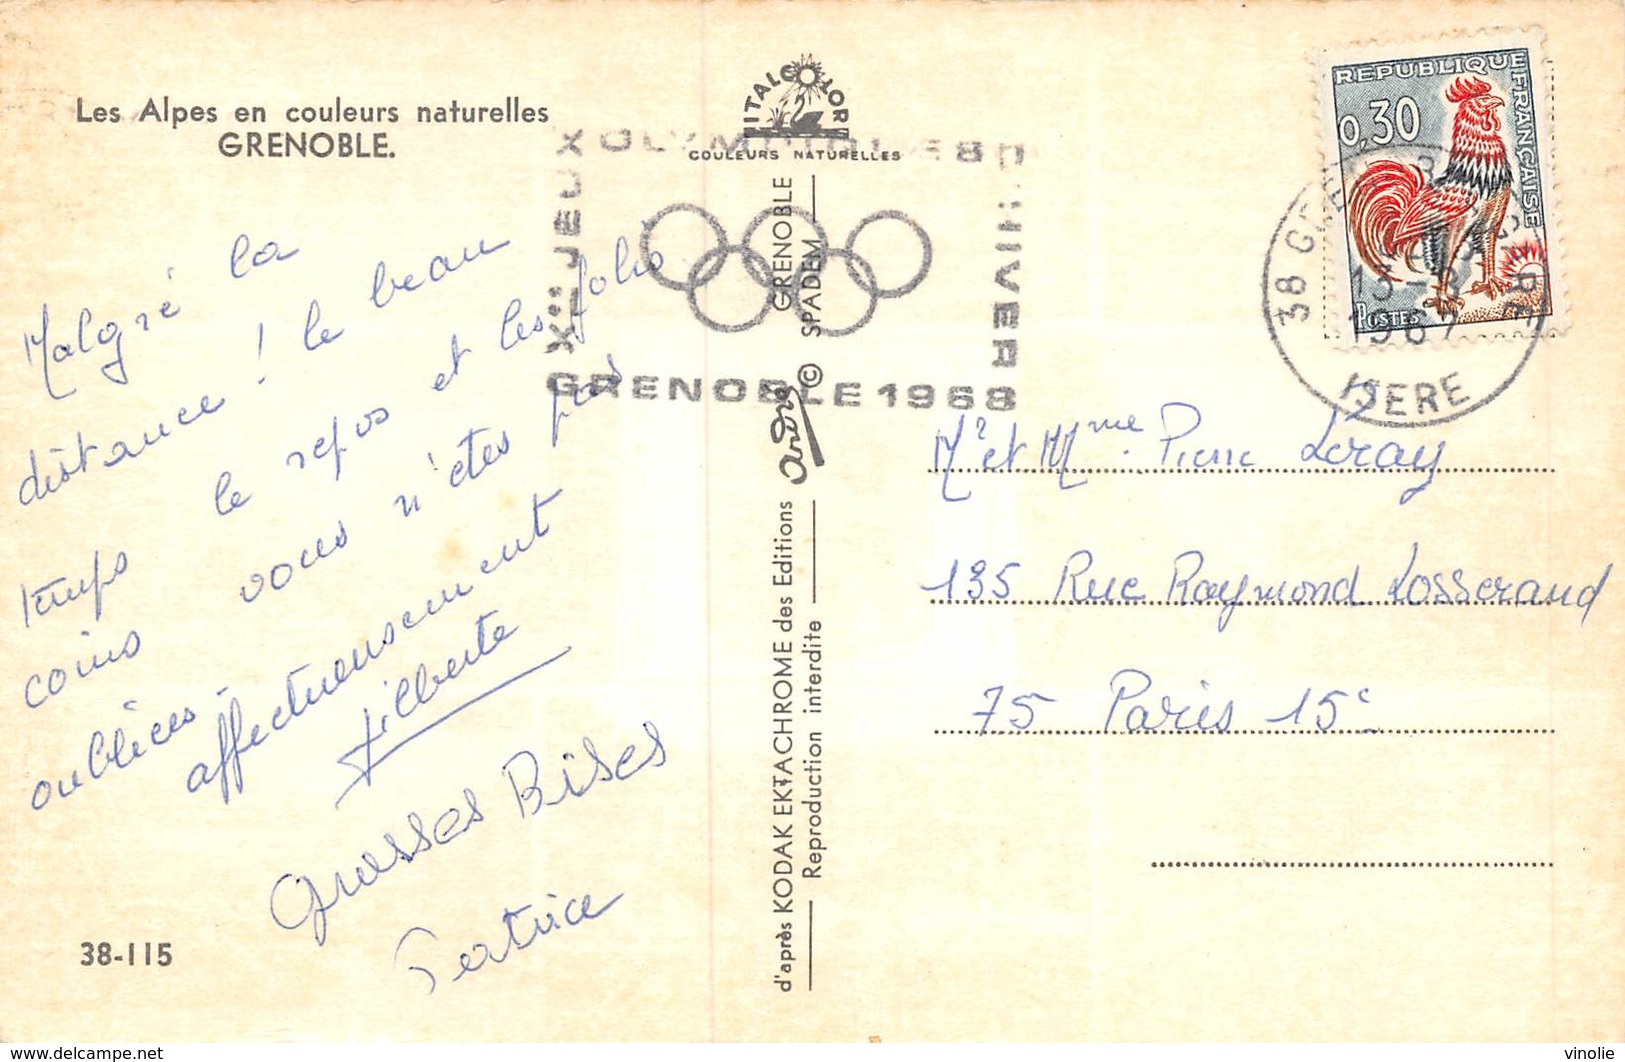 Les Alpes en couleurs naturelles
GRENOBLE.
Malgré la
distance ! le beau
temps le repos et les jolis
coins vous n'êtes pas
oubliées.
affectueusement
Gilberte
Grosses Bises
Patrice
38-115
ITALCOLOR
COULEURS NATURELLES
Xes JEUX OLYMPIQUES D'HIVER
GRENOBLE 1968
d'après KODAK EKTACHROME des Editions andré GRENOBLE
Reproduction interdite © SPADEM
REPUBLIQUE FRANÇAISE
0,30
POSTES
38 GRENOBLE GARE
13-
1967
ISERE
Mr et Mme Pierre Leray
135 Rue Raymond Losserand
75 Paris 15e
vinolie
www.delcampe.net